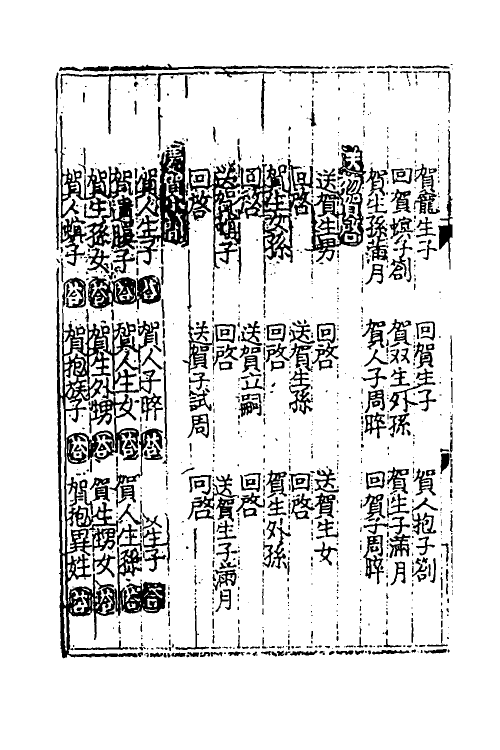 賀寵生子 回賀生子 賀人抱子劄
回賀螟子劄 賀双生外孫 賀生子滿月
賀生孫滿月 賀人子周晬 回賀子周晬
送物賀啓
送賀生男 回啓 送賀生女
回啓 送賀生孫 回啓
賀生女孫 回啓 賀生外孫
回啓 送賀立嗣 回啓
送賀螟子 回啓 送賀生子滿月
回啓 送賀子試周 回啓
賀人生子 答 賀人子晬 答 生子 答
賀 子 答 賀人生女 答 賀人生孫 答
賀生孫女 答 賀生外甥 答 賀生甥女 答
賀人螟子 答 賀抱族子 答 賀抱異姓 答